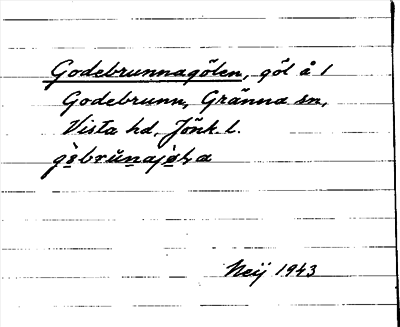 Godebrunnagölen, göl å 1
Godebrunn, Gränna sn,
Vista hd, Jönk. l.
Neij 1943